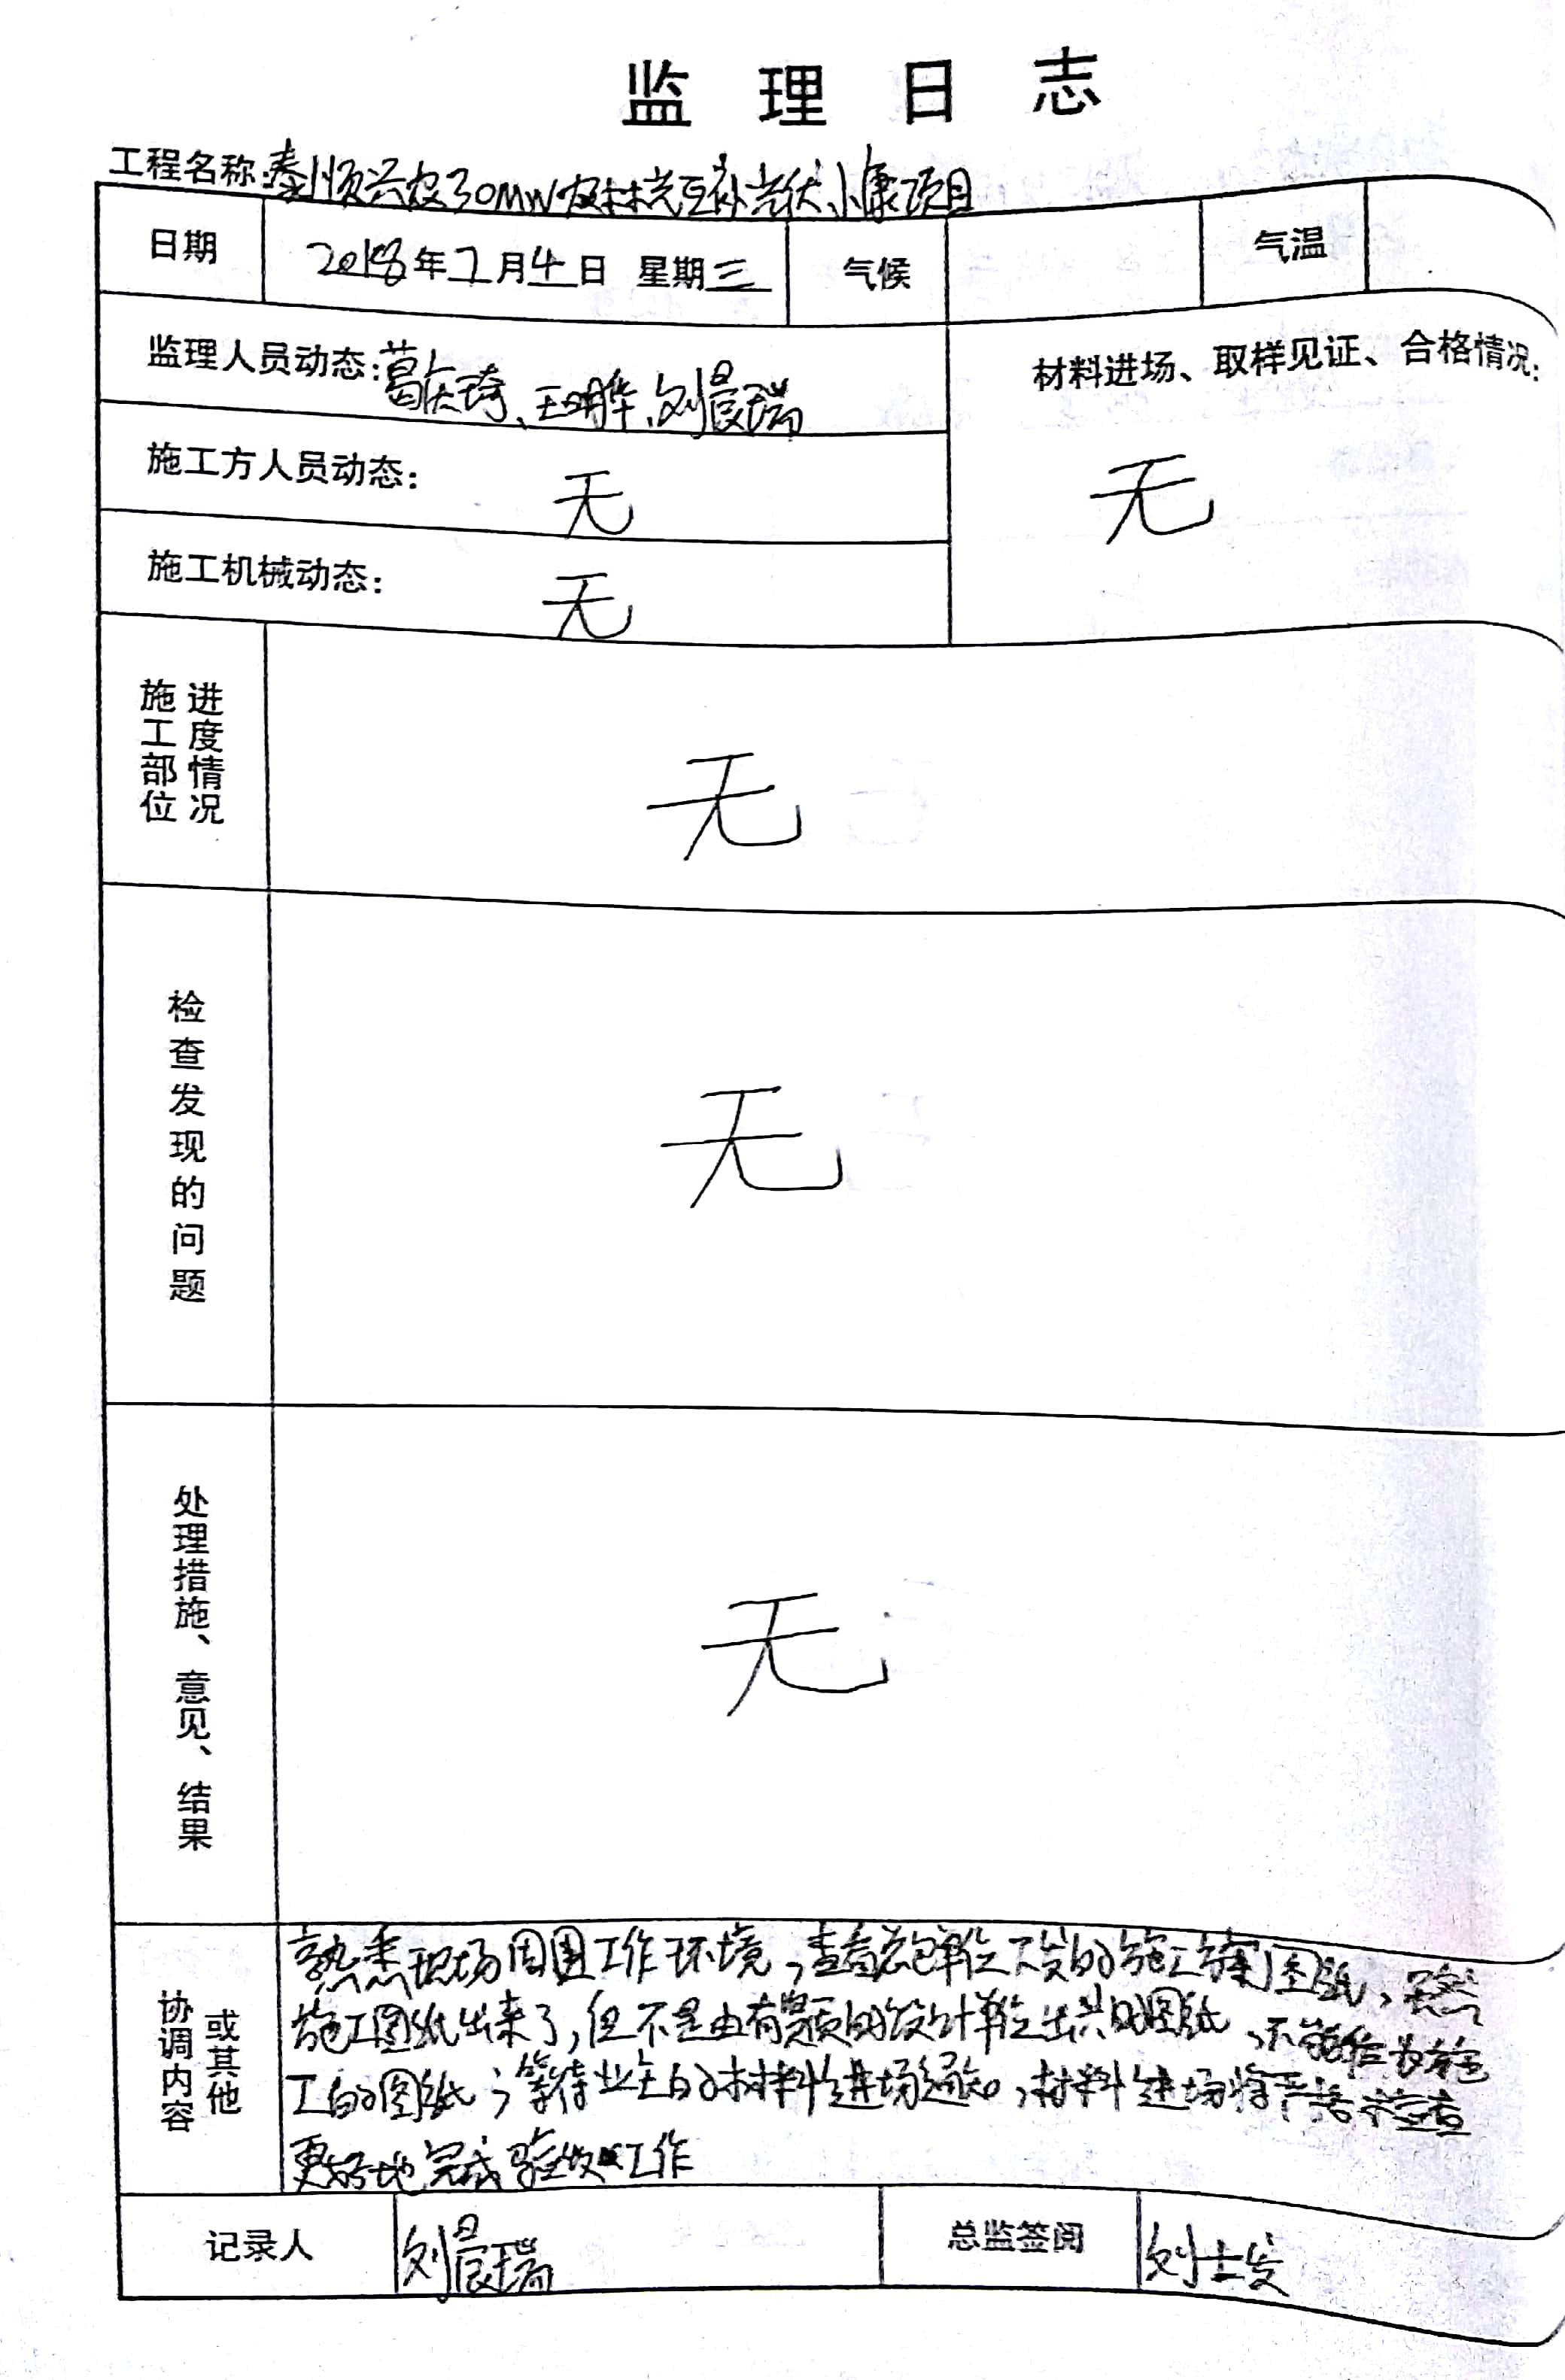 监理日志
工程名称:泰顺兴农30MW农林光互补光伏小康项目
日期 2018年7月4日 星期三 气候 气温
监理人员动态: 葛庆琦、王明华、刘晨瑞
材料进场、取样见证、合格情况:
无
施工方人员动态: 无
施工机械动态: 无
施工部位
进度情况
无
检查发现的问题
无
处理措施、意见、结果
无
协调内容
或其他
熟悉现场周围工作环境,查看总包单位下发的施工方案图纸,虽然
施工图纸出来了,但不是由有资质的设计单位出具的图纸,不能作为施
工的图纸;等待业主的材料进场通知,材料进场将严格检查
更好地完成验收工作
记录人 刘晨瑞 总监签阅 刘士发